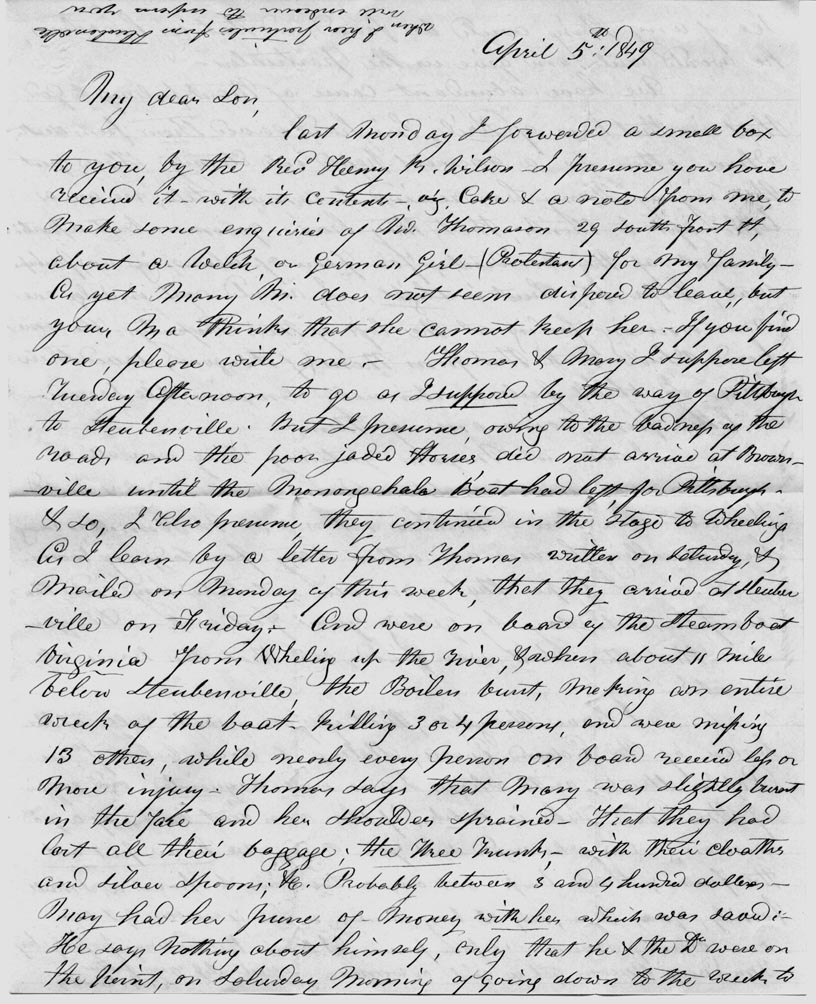 when I hear particulars from Steubenville
will endeavor to inform you
April 5th 1849
My dear Son,
last Monday I forwarded a small box
to you, by the Revd Henry R. Wilson - I presume you have
received it - with its contents -, viz, Cake & a note from me, to
make some enquiries of Thomason 29 south front St,
about a Welch, or German Girl - (Protestant) for my family -
As yet Mary does not seem disposed to leave, but
your Ma thinks that she cannot keep her - If you find
one, please write me. - Thomas & Mary I suppose left
Tuesday Afternoon, to go as I suppose by the way of Pittsburgh
to Steubenville. But I presume, owing to the badness of the
roads and the poor jaded Horses did not arrive at Brown-
-ville until the Monongehala Boat had left for Pittsburgh -
& so, I also presume, they continued in the stage to Wheeling
As I learn by a letter from Thomas written on Saturday, &
Mailed on Monday of this week, that they arrived at Steuben
-ville on Friday. - And were on board of the steamboat
Virginia from Wheling up the river, & when about 11 mile
below Steubenville, the Boilers burst, making an entire
wreck of the boat - killing 3 or 4 persons, and were missing
13 others, while nearly every person on board received less or
more injury - Thomas says that Mary was slightly burnt
in the face and her shoulder sprained - That they had
lost all their baggage; the three Trunks, - with their cloaths
and silver spoons; &c. Probably between 3 and 4 hundred dollars -
Mary had her purse of - Money with her which was saved: -
He says nothing about himself, only that he & the Dr were on
the point, on Saturday Morning of going down to the wreck to